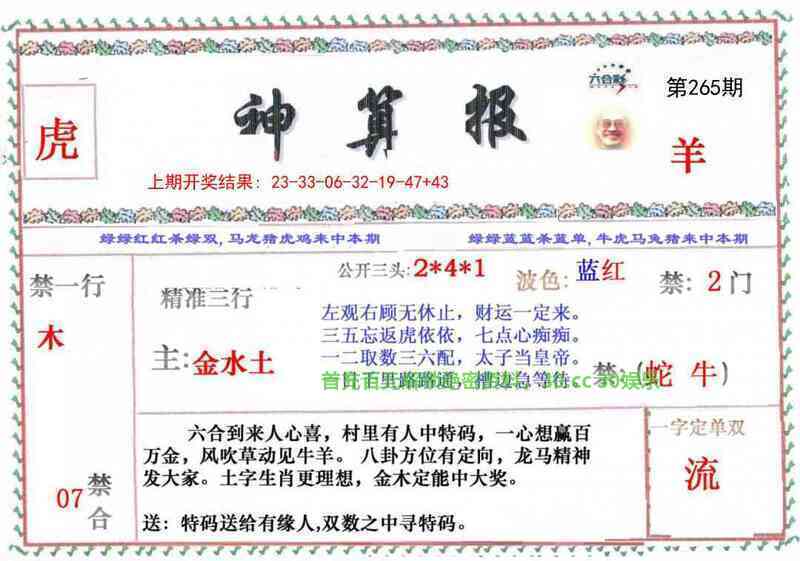 六合彩
第265期
虎
神算报
羊
上期开奖结果：23-33-06-32-19-47+43
绿绿红红杀绿双,马龙猪虎鸡来中本期
绿绿蓝蓝杀蓝单,牛虎马兔猪来中本期
禁一行
木
07
禁合
精准三行
主:金水土
公开三头:2*4*1
波色:蓝红
禁:2门
左观右顾无休止，财运一定来。
三五忘返虎依依，七点心痴痴。
一二取数三六配，太子当皇帝。
一日百里路路通，槽边急等待。
禁:(蛇 牛)
六合到来人心喜，村里有人中特码，一心想赢百
万金，风吹草动见牛羊。 八卦方位有定向，龙马精神
发大家。土字生肖更理想，金木定能中大奖。
送：特码送给有缘人,双数之中寻特码。
一字定单双
流